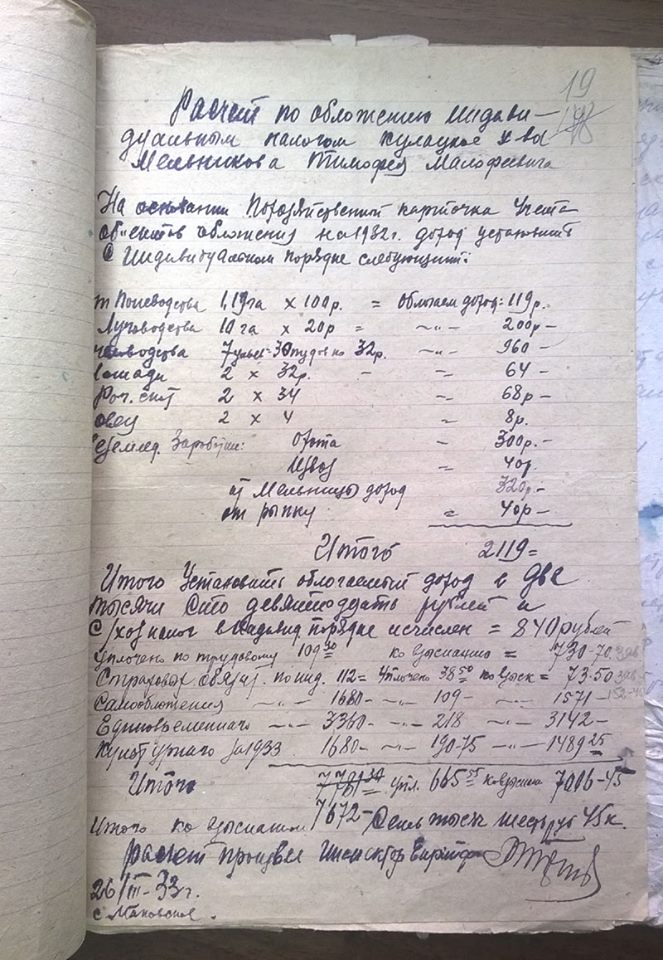 19
Расчет по обложению индиви-
дуальным налогом кулацкое х-во
Мельникова Тимофея Малофеевича
На основании Похозяйственной карточка Учета
об'ектов обложения на 1932г. доход установит
в Индивидуальном порядке следующий:
от Полеводства 1,19 га х 100р. = Облогаем доход: 119р.
Луговодства 10 га х 20р = -"- 200р -
человодства 7 ульев - 30 пудов по 32р. -"- 960 -
лошади 2 х 32р. - = 64 -
Рог. скот 2 х 34 = 68р -
овец 2 х 4 = 8р.
Заработки: Охота - 300р. -
Извоз = 40р.
от Мельницы доход 320р -
от рынку = 40р -
Итого 2119=
Итого Установить облогаемый доход в две
тысячи сто девятнодцать рублей и
С/хоз налог в индивид порядке исчислен = 840 рублей
Уплочено по трудовому 109 30 ко взысканию = 730-70
Страховог обязат. по инд. 112= Уплочено 38 50 ко взыск = 73-50
Самообложения -"- 1680- -"- 109- -"- 1571-
Единовременного -"- 3360- -"- 218 -"- 3142-
Культурного за 1933 1680- -"- 190-75 -"- 1489 25
Итого упл. 665 55 ко взысию 7006-45
Итого ко взысканию 7672- Семь тысяч 45 к.
расчет произвел инспектор
26/III-33г.
с Маковское.